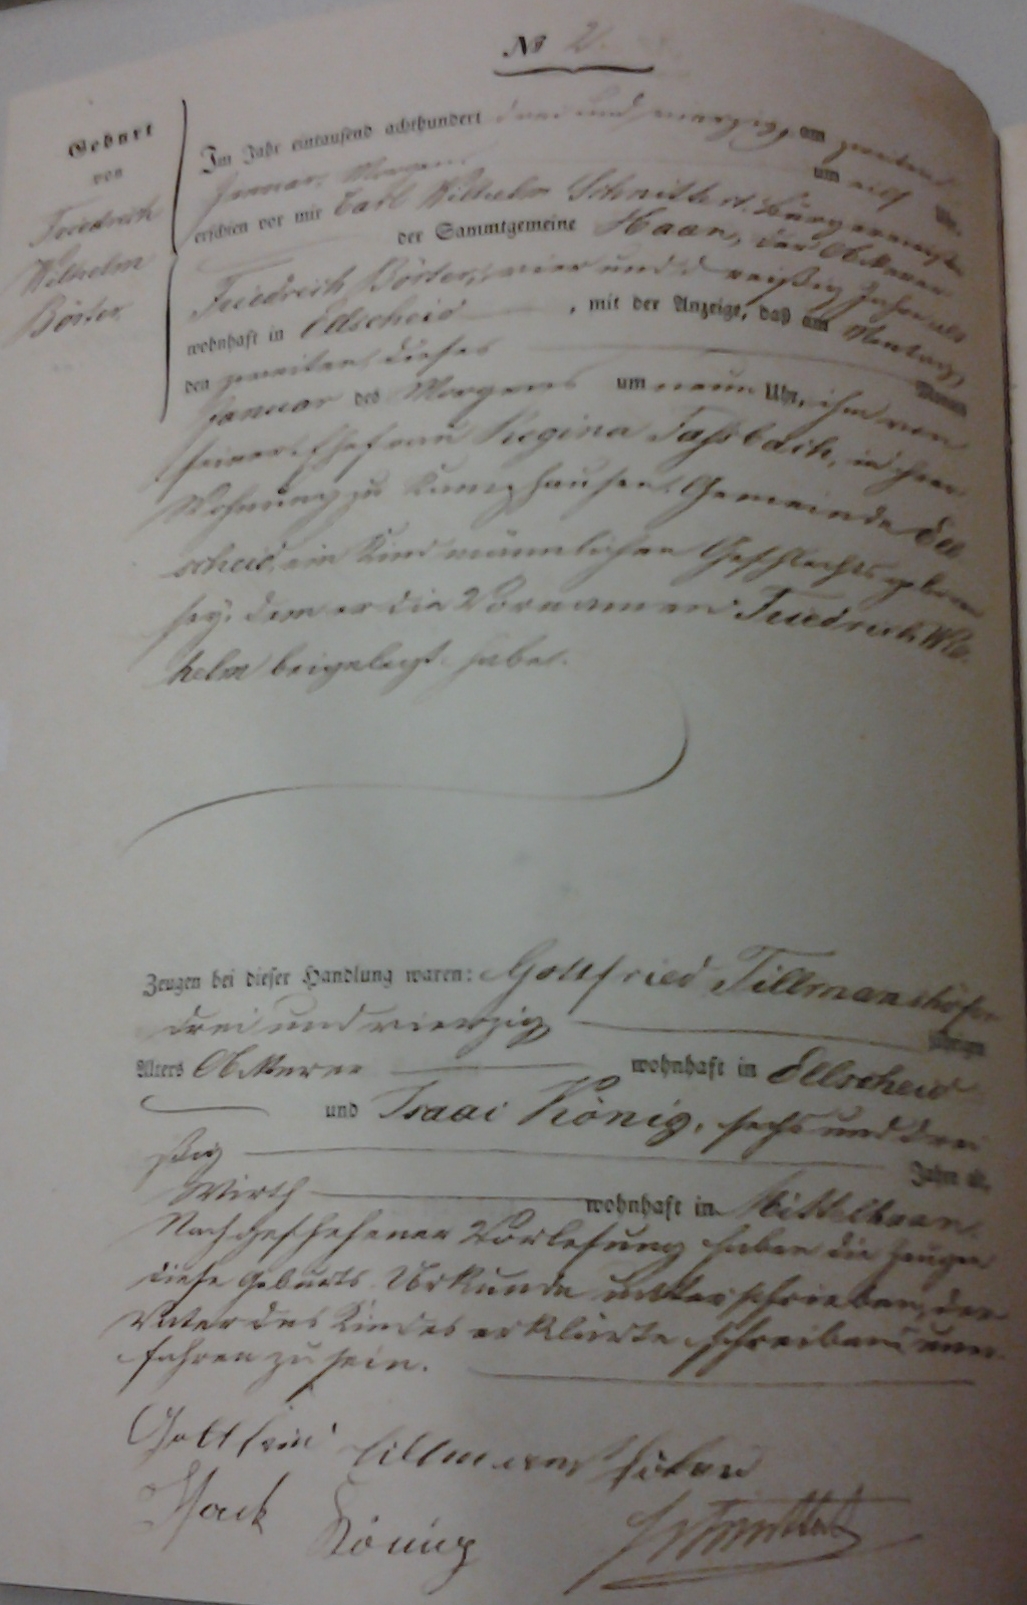 № 2.
Geburt
von
Friedrich
Wilhelm
Börter.
Im Jahr eintausend achthundert drei und vierzig, am zweiten
Januar, Morgens um elf Uhr,
erschien vor mir Carl Wilhelm Schnittert, Bürgermeister
der Sammtgemeine Haan, der Ackerer
Friedrich Börter, vier und dreißig Jahre alt
wohnhaft in Ellscheid, mit der Anzeige, daß am Montag,
den zweiten dieses Monats
Januar des Morgens um neun Uhr, ihm von
seiner Ehefrau Regina Taßbach, in ihrer
Wohnung zu Kunzhausen Gemeinde Ell
scheid, ein Kind männlichen Geschlechts geboren
sey, dem er die Vornamen Friedrich Wil
helm beigelegt habe.
Zeugen bei dieser Handlung waren: Gottfried Tillmanshöfer
drei und vierzig jährigen
Alters Ackerer wohnhaft in Ellscheid
und Isaac König, sechs und drei
ßig Jahre alt,
Wirth wohnhaft in Mittelhaan.
Nach geschehener Vorlesung haben die Zeugen
diese Geburts Urkunde unterschrieben, der
Vater des Kindes erklärte schreibens uner
fahren zu sein.
Gottfried Tillmanshöfer
Isack König Schnittert